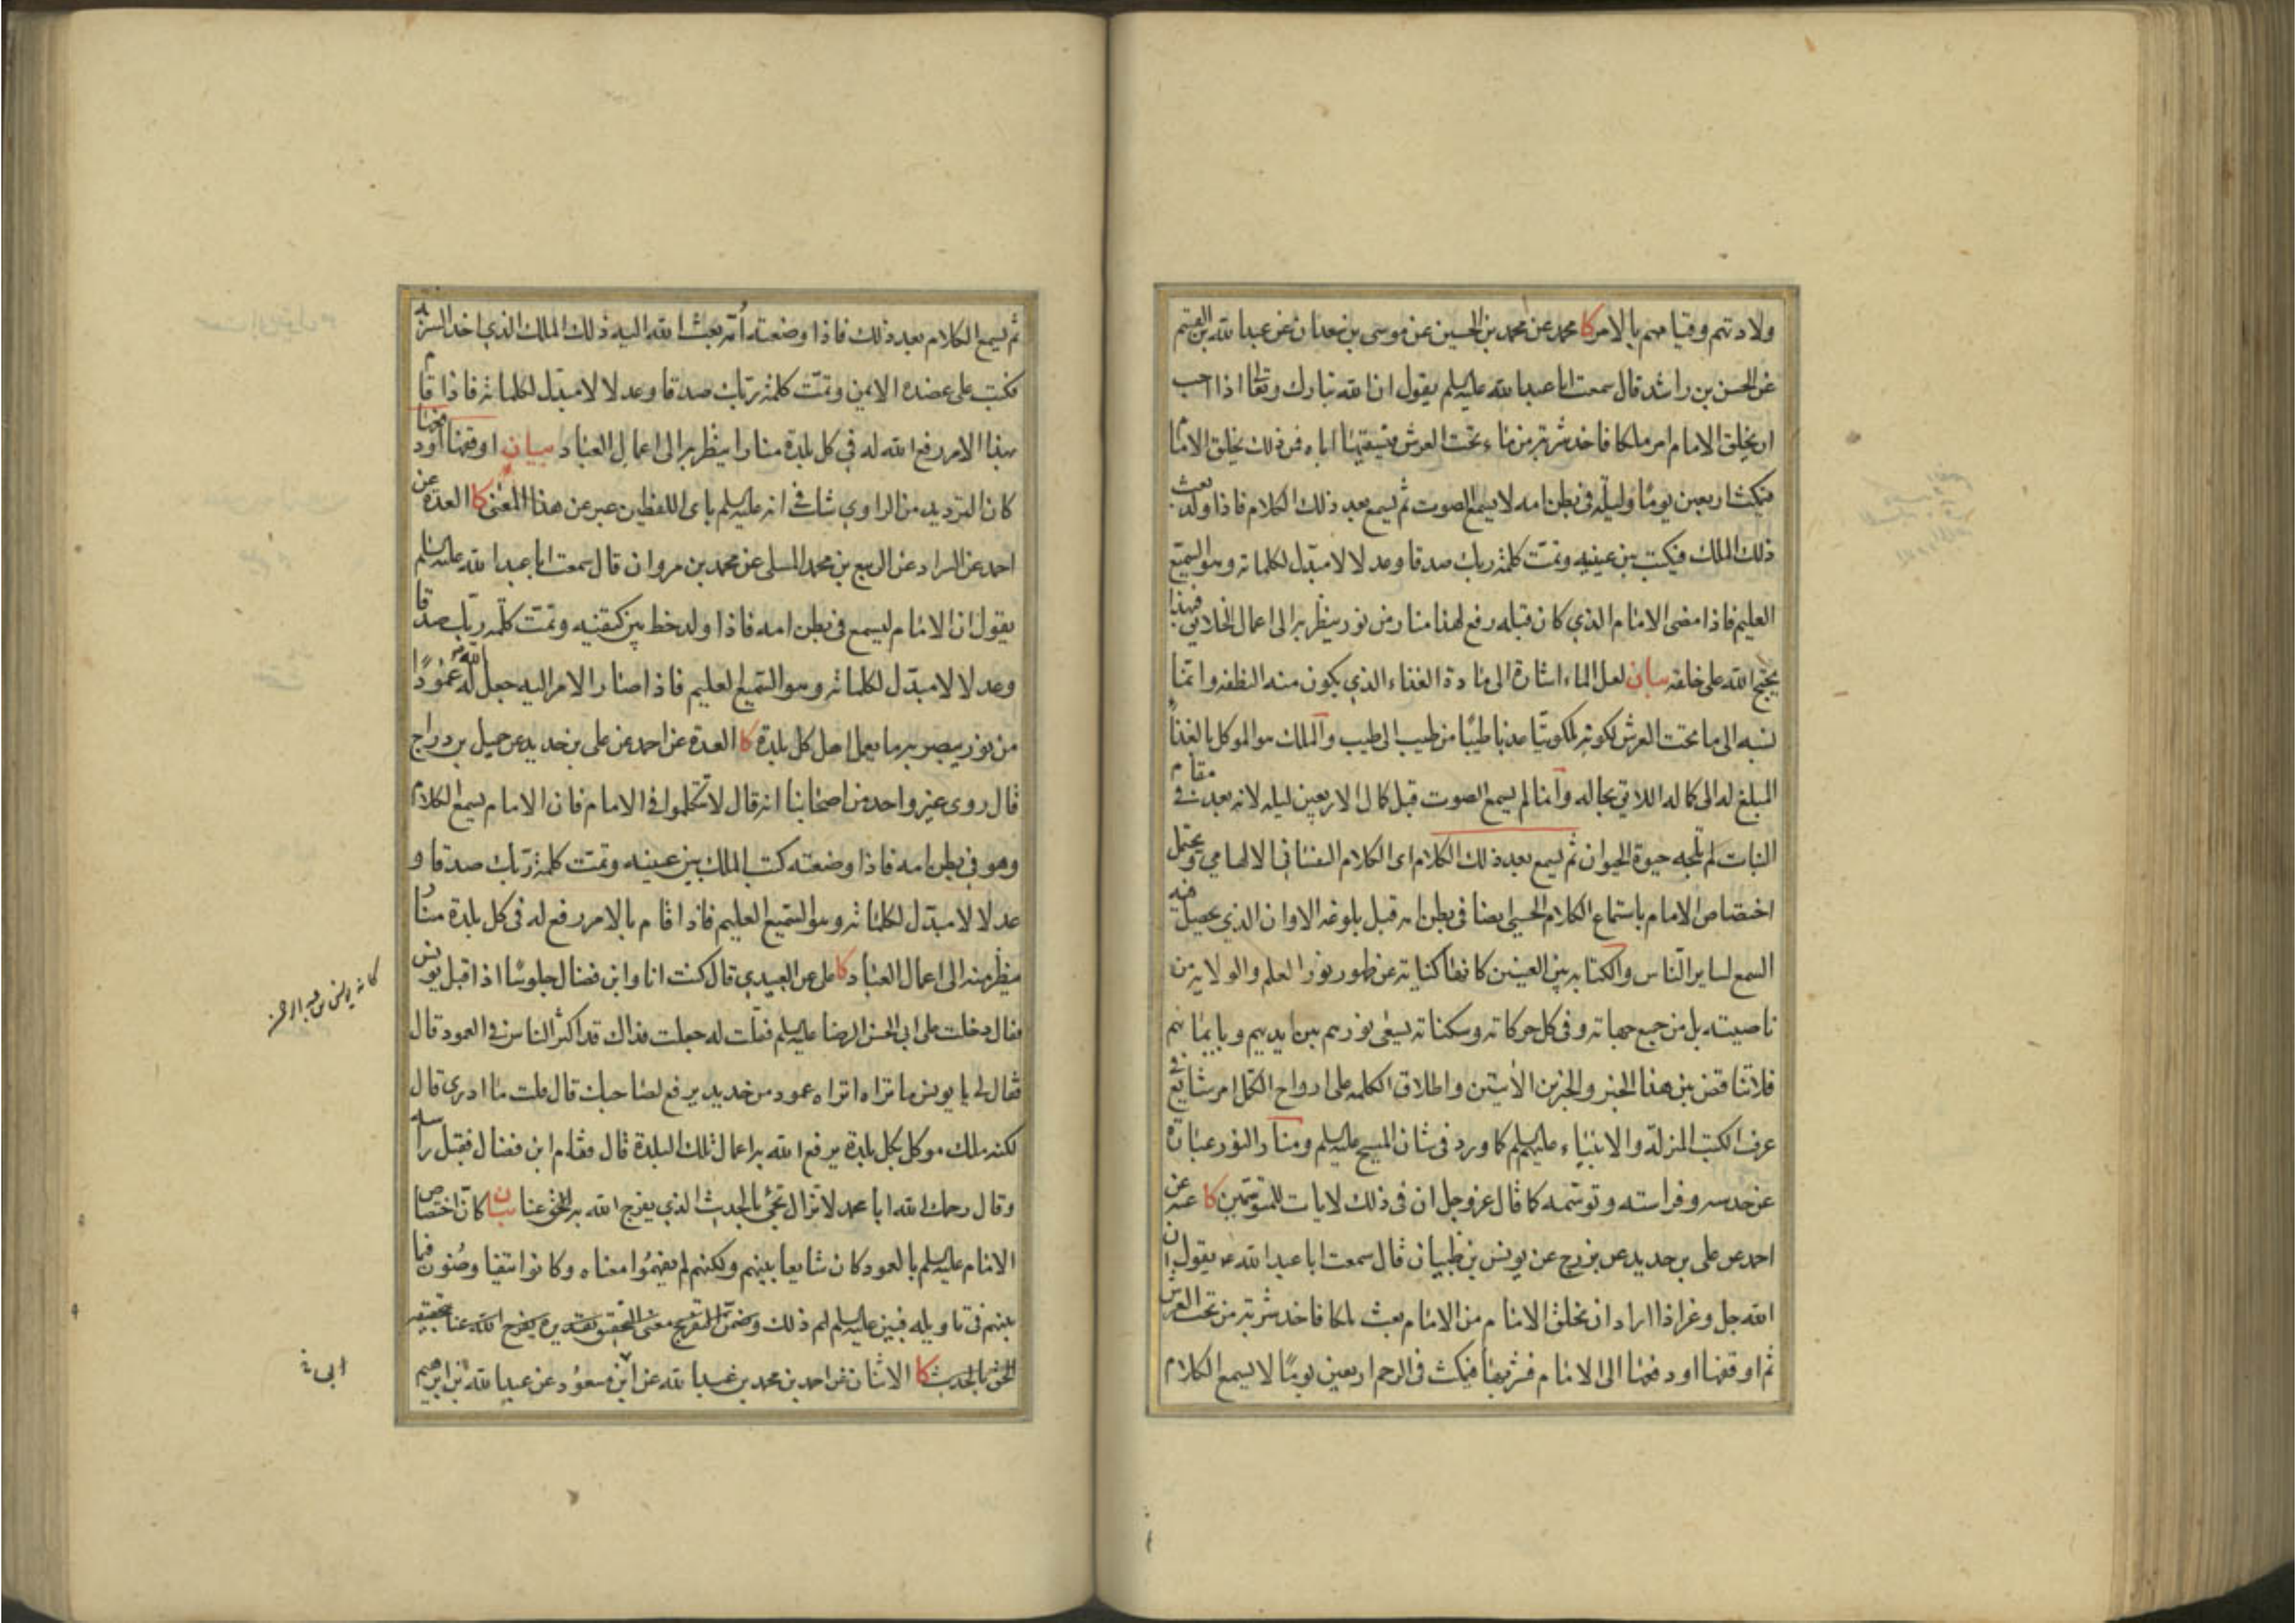 ولادتهم وقيامهم بالامر كا محمد عن محمد بن الحسين عن موسى بن سعدان عن عبد الله بن القسم
عن الحسن بن راشد قال سمعت ابا عبد الله عليه السلم يقول ان الله تبارك وتعالى اذا احب
ان يخلق الامام امر ملكا فاخذ شربة من ماء تحت العرش فيسقيها اباه فمن ذلك يخلق الامام
فيمكث اربعين يوما وليلة في بطن امه لا يسمع الصوت ثم يسمع بعد ذلك الكلام فاذا ولد بعث
ذلك الملك فيكتب بين عينيه وتمت كلمة ربك صدقا وعدلا لا مبدل لكلماته وهو السميع
العليم فاذا مضى الامام الذي كان قبله رفع لهذا منار من نور ينظر به الى اعمال الخلايق فبهذا
يحتج الله على خلقه بيان لعل الماء اشارة الى مادة الغذاء الذي يكون منه النطفة وانما
نسبه الى ما تحت العرش لكونه ملكوتيا عذبا طيبا من طيب الى طيب والملك هو الموكل بالغذاء
المبلغ له الى كماله اللايق بحاله وانما لم يسمع الصوت قبل كمال الاربعين ليلة لانه بعد في مقام
النبات لم تلجه حيوة الحيوان ثم يسمع بعد ذلك الكلام اى الكلام النفساني الالهامي ويحتمل
اختصاص الامام باستماع الكلام الحسي ايضا في بطن امه قبل بلوغه الاوان الذي يحصل فيه
السمع لساير الناس والكتابة بين العينين كانها كناية عن ظهور نور العلم والولاية من
ناصيته بل من جميع جهاته وفي كل حركاته وسكناته يسعى نورهم بين ايديهم وبايمانهم
فلا تناقض بين هذا الخبر والخبرين الآتيين واطلاق الكلمة على ارواح الكمل امر شايع في
عرف الكتب المنزلة والانبياء عليهم السلم كما ورد في شان المسيح عليه السلم ومنار النور عبارة
عن حدسه وفراسته وتوسمه كما قال عز وجل ان في ذلك لايات للمتوسمين كا عنه عن
احمد عن على بن حديد عن بزرج عن يونس بن ظبيان قال سمعت ابا عبد الله ع يقول ان
الله جل وعز اذا اراد ان يخلق الامام من الامام بعث ملكا فاخذ شربة من تحت العرش
ثم اوقفها او دفعها الى الامام فشربها فيمكث في الرحم اربعين يوما لا يسمع الكلام
ثم يسمع الكلام بعد ذلك فاذا وضعته امه بعث الله اليه ذلك الملك الذي اخذ الشربة
فكتب على عضده الايمن وتمت كلمة ربك صدقا وعدلا لا مبدل لكلماته فاذا قام
بهذا الامر رفع الله له في كل بلدة منارا ينظر به الى اعمال العباد بيان اوقفها او دفعها
كان الترديد من الراوي شك في انه عليه السلم باى اللفظين عبر عن هذا المعنى كا العدة عن
احمد عن السراد عن الربيع بن محمد المسلي عن محمد بن مروان قال سمعت ابا عبد الله عليه السلم
يقول ان الامام ليسمع في بطن امه فاذا ولد خط بين كتفيه وتمت كلمة ربك صدقا
وعدلا لا مبدل لكلماته وهو السميع العليم فاذا صار الامر اليه جعل الله له عمودا
من نور يبصر به ما يعمل اهل كل بلدة كا العدة عن احمد عن على بن حديد عن جميل بن دراج
قال روى غير واحد من اصحابنا انه قال لا تتكلموا في الامام فان الامام يسمع الكلام
وهو في بطن امه فاذا وضعته كتب الملك بين عينيه وتمت كلمة ربك صدقا و
عدلا لا مبدل لكلماته وهو السميع العليم فاذا قام بالامر رفع له في كل بلدة منار
ينظر منه الى اعمال العباد كا على عن العبيدي قال كنت انا وابن فضال جلوسا اذ اقبل يونس
فقال دخلت على ابى الحسن الرضا عليه السلم فقلت له جعلت فداك قد اكثر الناس في العمود قال
فقال لي يا يونس ما تراه اتراه عمود من حديد يرفع لصاحبك قال قلت ما ادرى قال
لكنه ملك موكل بكل بلدة يرفع الله به اعمال تلك البلدة قال فقام ابن فضال فقبل راسه
وقال رحمك الله ابا محمد لا تزال تجئ بالحديث الذي يفرج الله به الحق عنا بيان كان اختصاص
الامام عليه السلم بالعمود كان شايعا بينهم ولكنهم لم يفهموا معناه وكانوا يتفاوضون فيما
بينهم في تاويله فبين عليه السلم لهم ذلك وضمن التفريج معنى التحقيق تقديره يفرج الله عنا بتحقيقه
الحق بالحديث كا الاثنان عن احمد بن محمد بن عبد الله عن ابن مسعود عن عبد الله بن ابرهيم
كانه يونس بن عبد الرحمن
ابى